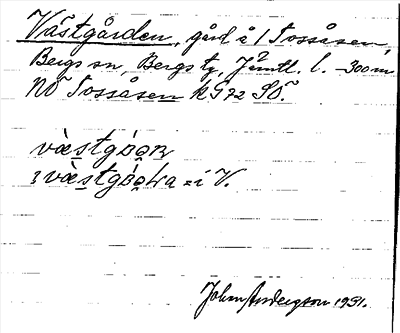 Västgården, gård å / Tossåsen,
Bergs sn, Bergs tg, Jämtl. l. -300 m
NÖ Tossåsen kG 72 SÖ.
væ̀stgɷ́ɷn
ɜ væ̀stgɷ́ɷLa = i V.
John Anderzson 1931.